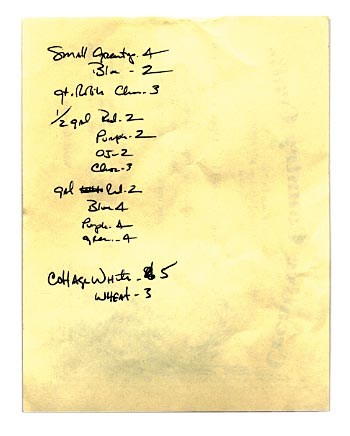 Small Gravity - 4
Blue - 2
qt. Robin Choc - 3
1/2 gal Red - 2
Purple - 2
OJ - 2
Choc - 3
gal Red - 2
Blue 4
Purple - 4
green - 4
Cottage White - 5
WHEAT - 3